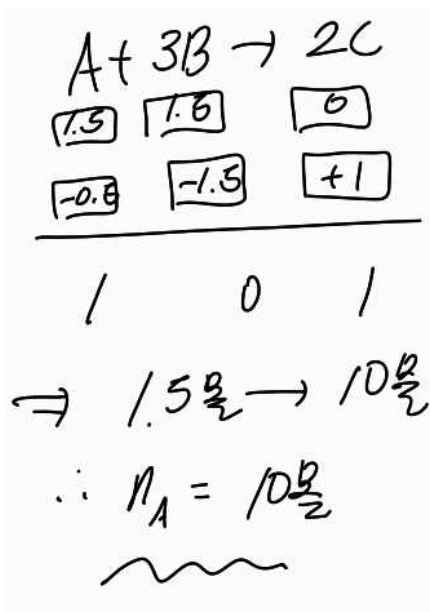 A + 3B → 2C
1.5 1.5 0
-0.5 -1.5 +1
1 0 1
⇒ 1.5몰 → 10몰
∴ n_A = 10몰